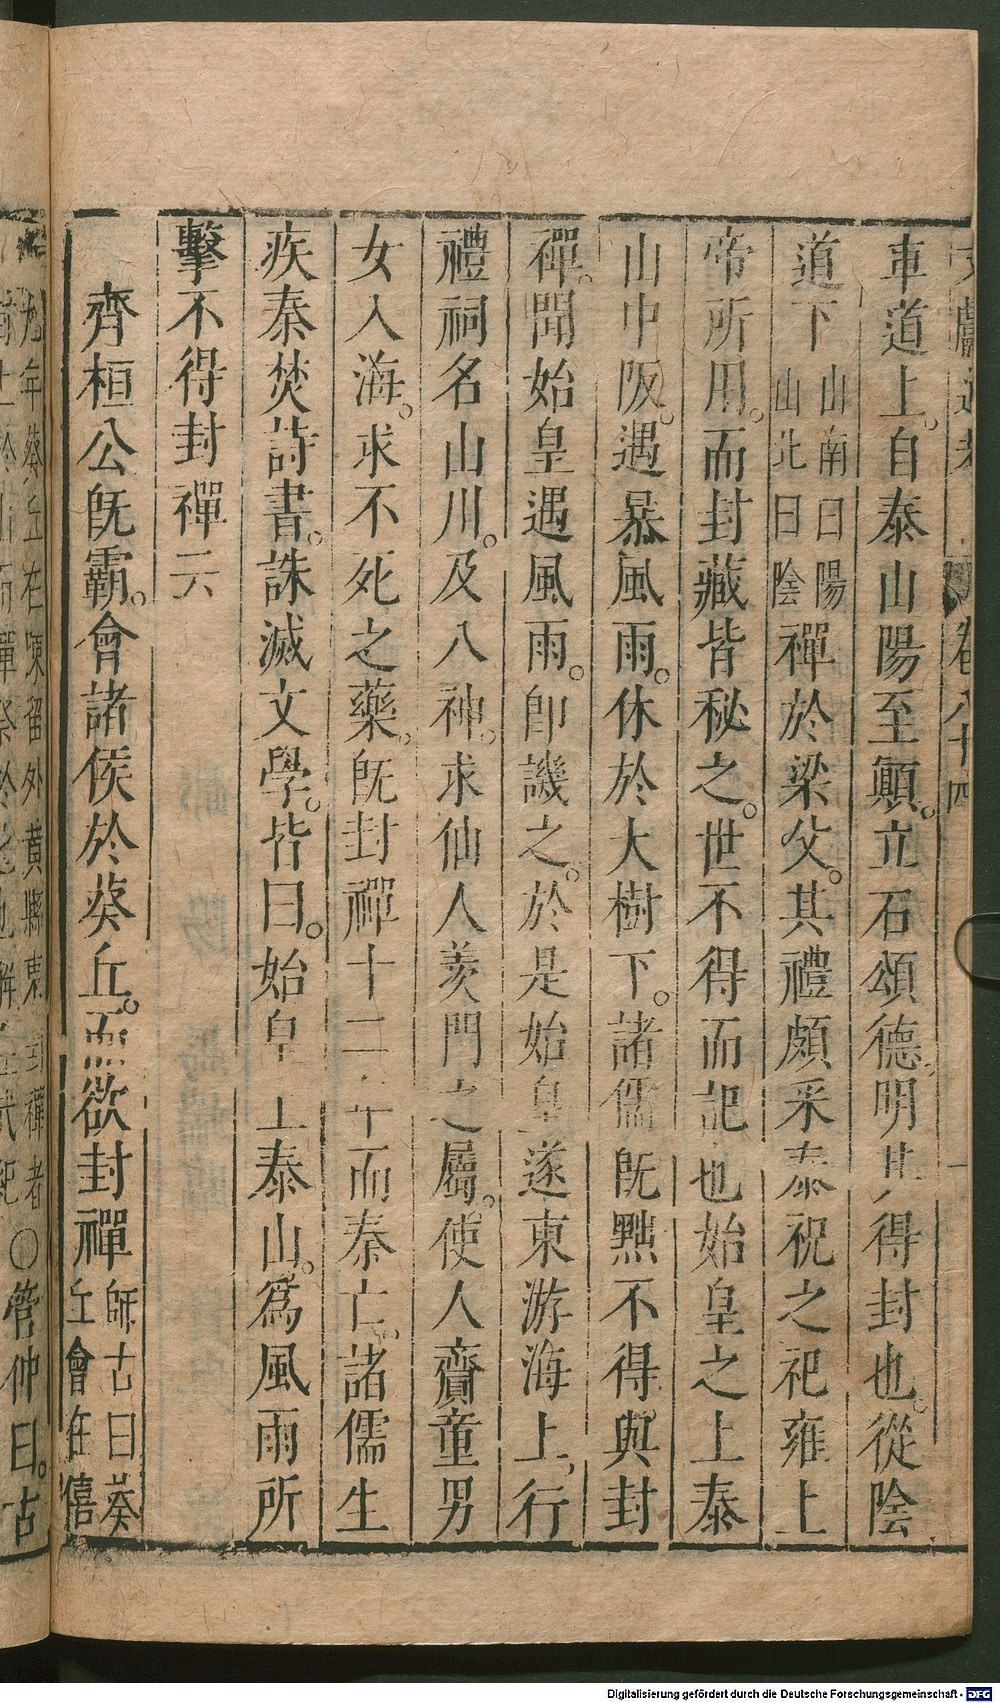 文獻通考 卷八十四 一
車道上。自泰山陽至顚。立石頌德，明其得封也。從陰
道下山南曰陽山北曰陰禪於梁父。其禮頗釆泰祝之祀雍上
帝所用。而封藏皆秘之。世不得而記也始皇之上泰
山中阪。遇暴風雨。休於大樹下。諸儒旣黜不得。與封
禪。聞始皇遇風雨。卽譏之。於是始皇遂東游海上，行
禮祠名山川。及八神。求仙人羡門之屬。使人齎童男
女入海。求不死之藥。旣封禪十二年而秦亡。諸儒生
疾秦焚詩書。誅滅文學。皆曰。始皇上泰山。爲風雨所
擊不得封禪云
齊桓公旣霸。會諸侯於葵丘。而欲封禪師古曰葵丘會在僖
九年葵丘在陳留外黃縣東封禪者
〇管仲曰。古
Digitalisierung gefördert durch die Deutsche Forschungsgemeinschaft - DFG